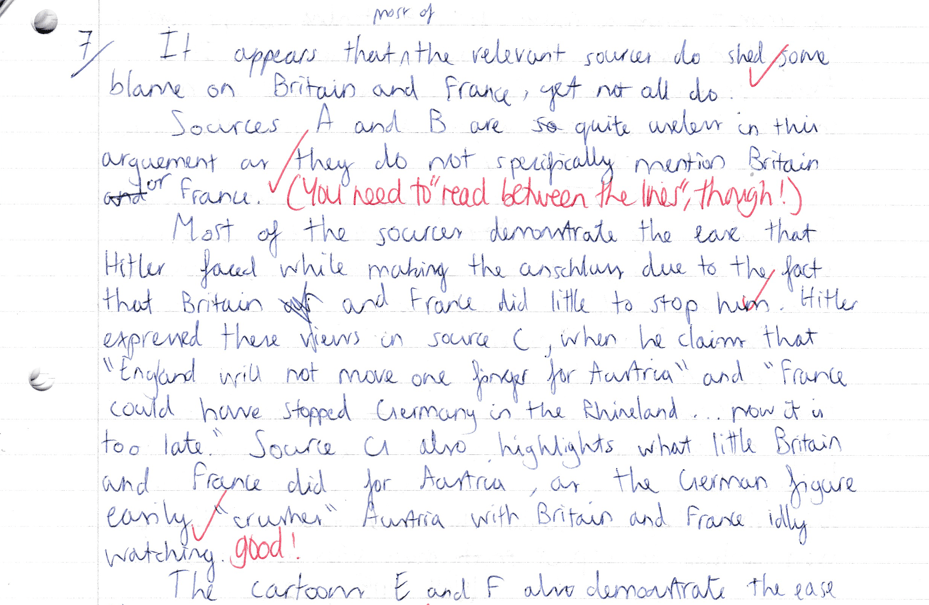 most of
7/ It appears that ^ the relevant sources do shed some
blame on Britain and France, yet not all do.
Sources A and B are so quite useless in this
arguement as they do not specifically mention Britain
and or France. (You need to "read between the lines", though!)
Most of the sources demonstrate the ease that
Hitler faced while making the anschluss due to the fact
that Britain and France did little to stop him. Hitler
expressed these views in source C, when he claims that
"England will not move one finger for Austria" and "France
could have stopped Germany in the Rhineland... now it is
too late." Source G also highlights what little Britain
and France did for Austria, as the German figure
easily "crushes" Austria with Britain and France idly
watching. good!
The cartoons E and F also demonstrate the ease